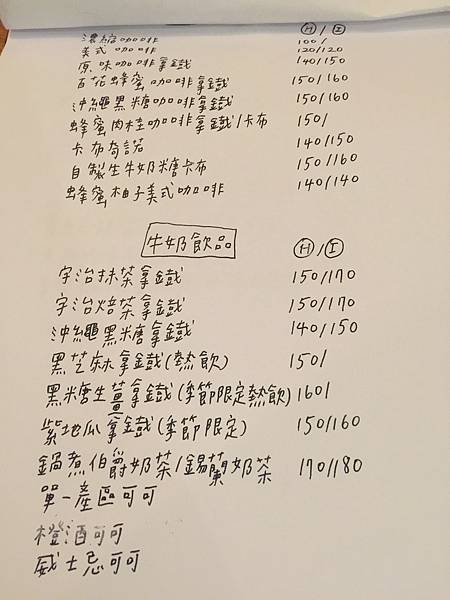 濃縮咖啡 Ⓗ/Ⓘ 100/
美式咖啡 120/120
原味咖啡拿鐵 140/150
百花蜂蜜咖啡拿鐵 150/160
沖繩黑糖咖啡拿鐵 150/160
蜂蜜肉桂咖啡拿鐵/卡布 150/
卡布奇諾 140/150
自製生牛奶糖卡布 150/160
蜂蜜柚子美式咖啡 140/140
牛奶飲品 Ⓗ/Ⓘ
宇治抹茶拿鐵 150/170
宇治焙茶拿鐵 150/170
沖繩黑糖拿鐵 140/150
黑芝麻拿鐵(熱飲) 150/
黑糖生薑拿鐵(季節限定熱飲) 160/
紫地瓜拿鐵(季節限定) 150/160
鍋煮伯爵奶茶/錫蘭奶茶 170/180
單一產區可可
橙酒可可
威士忌可可